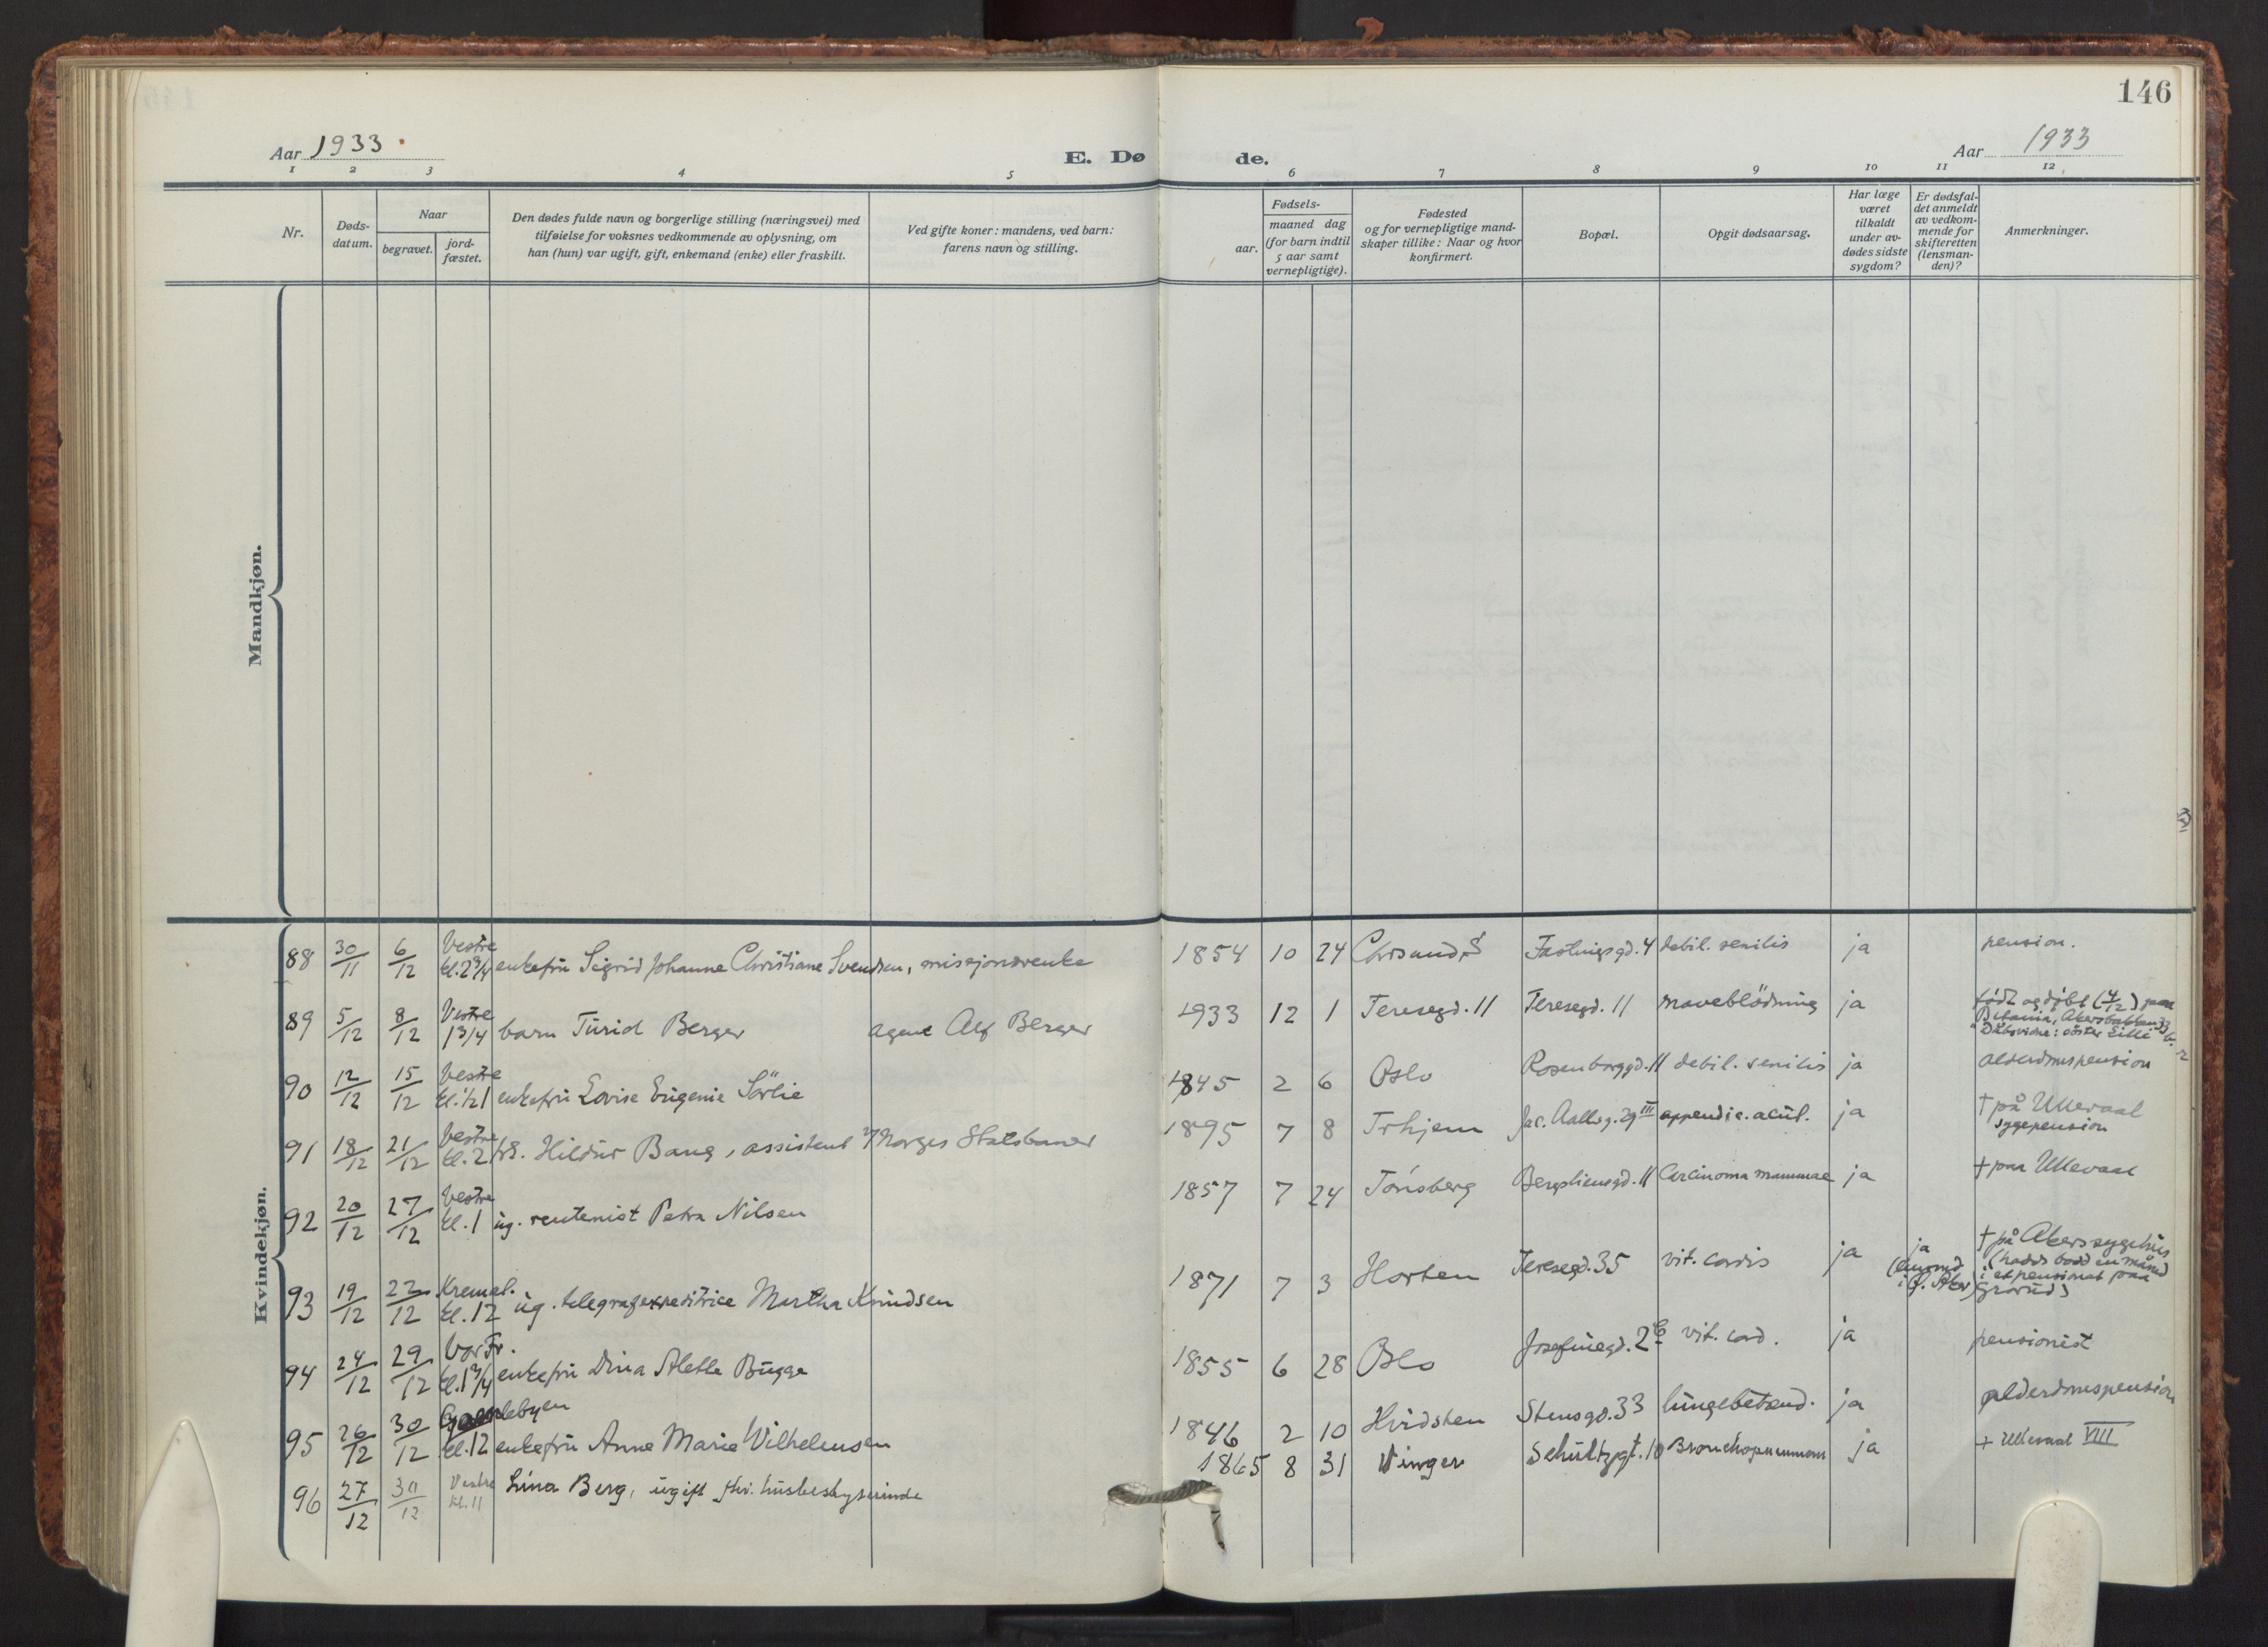 146
Aar 1933.
E. Døde.
Aar 1933
1 2 3 4 5 6 7 8 9 10 11 12
Nr.
Døds-
datum.
Naar
begravet.
jord-
fæstet.
Den dødes fulde navn og borgerlige stilling (næringsvei) med
tilføielse for voksnes vedkommende av oplysning, om
han (hun) var ugift, gift, enkemand (enke) eller fraskilt.
Ved gifte koner: mandens, ved barn:
farens navn og stilling.
Fødsels-
aar.
maaned dag
(for barn indtil
5 aar samt
vernepligtige).
Fødested
og for vernepligtige mand-
skaper tillike: Naar og hvor
konfirmert.
Bopæl.
Opgit dødsaarsag.
Har læge
været
tilkaldt
under av-
dødes sidste
sygdom?
Er dødsfal-
det anmeldt
av vedkom-
mende for
skifteretten
(lensman-
den)?
Anmerkninger.
Mandkjøn.
Kvindekjøn.
88 30/11 6/12 Vestre kl. 2 3/4 enkefrü Sigrid Johanne Christiane Svendsen, misjonærenke 1854 10 24 Chrsand S Fastingsgd. 4 debil. senilis ja pension.
89 5/12 8/12 Vestre 1 3/4 barn Türid Berger agent Alf Berger 1933 12 1 Teresegd. 11 Teresegd. 11 maveblödning ja født og døbt (4/12) paa
Betania, Akersbakken
Dåbsvidne: söster Lilli
90 12/12 15/12 Vestre kl. 1/2 1 enkefrü Lovise Eügenie Sörlie 1845 2 6 Oslo Rosenborggd. 11 debil. senilis ja alderdomspension
91 18/12 21/12 Vestre kl. 2 frk. Hildür Bang, assistent v/ Norges Statsbaner 1895 7 8 Trhjem Jac. Aallsg. 29 III appendic. acüt. ja † på Ullevaal
sygepension
92 20/12 27/12 Vestre kl. 1 üg. rentenist Petra Nilsen 1857 7 24 Tönsberg Bergsliensgd. 11 Carcinoma mammae ja † paa Ullevaal
93 19/12 22/12 Kremat. kl. 12 üg. telegrafexpeditrice Martha Knüdsen 1871 7 3 Horten Teresegd. 35 vit. cordis ja ja † på Akers sygehüs
(hadde bodd en måned
i et pensionat paa
Grorüd)
94 24/12 29/12 Vor Fr. kl. 1 3/4 enkefrü Dina Alette Bügge 1855 6 28 Oslo Josefinegd. 2 vit. cord. ja pensionist
95 26/12 30/12 Gamlebyen kl. 12 enkefrü Anne Marie Wilhelmsen 1846 2 10 Hvidsten Stensgd. 33 lüngebetænd. ja alderdomspension
96 27/12 30/12 Vestre kl. 11 Lina Berg, ügift fhv. hüsbestyrerinde 1865 8 31 Vinger Schültzgt. 10 Bronchopneumoni ja † Ullevaal VIII